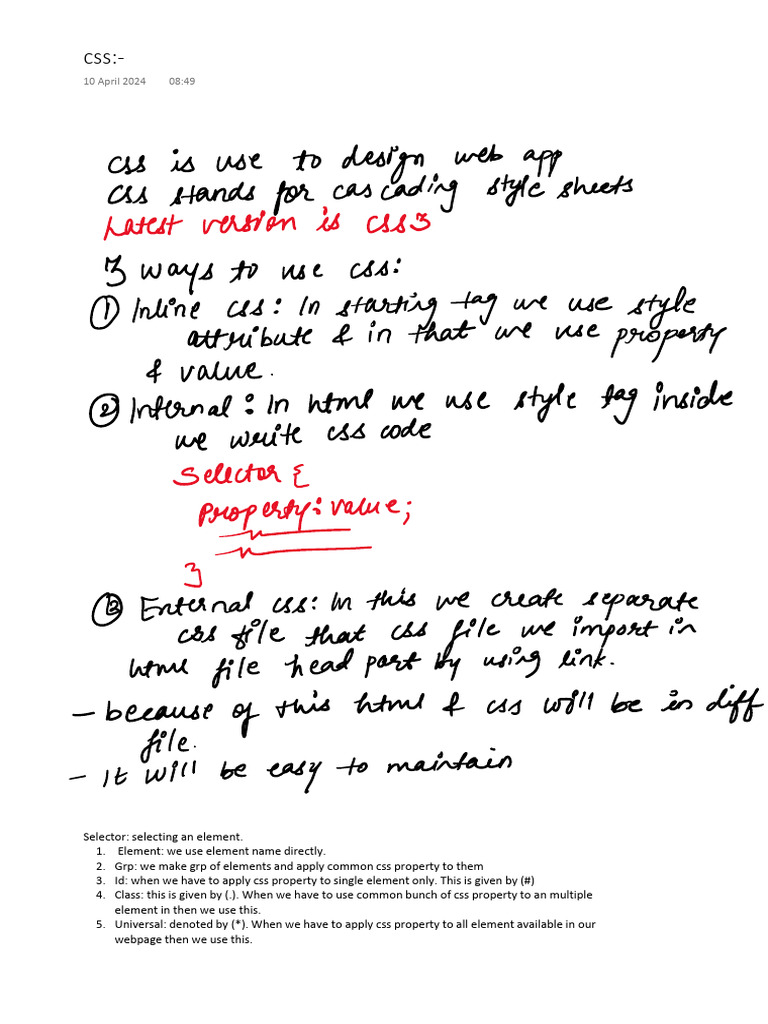 CSS:-
10 April 2024 08:49
css is use to design web app
css stands for cascading style sheets
Latest version is CSS3
3 ways to use css:
① Inline css: In starting tag we use style
attribute & in that we use property
& value.
② Internal: In html we use style tag inside
we write css code
Selector {
Property: value;
}
③ External css: In this we create separate
css file that css file we import in
html file head part by using link.
- because of this html & css will be in diff
file.
- It will be easy to maintain
Selector: selecting an element.
1. Element: we use element name directly.
2. Grp: we make grp of elements and apply common css property to them
3. Id: when we have to apply css property to single element only. This is given by (#)
4. Class: this is given by (.). When we have to use common bunch of css property to an multiple
element in then we use this.
5. Universal: denoted by (*). When we have to apply css property to all element available in our
webpage then we use this.